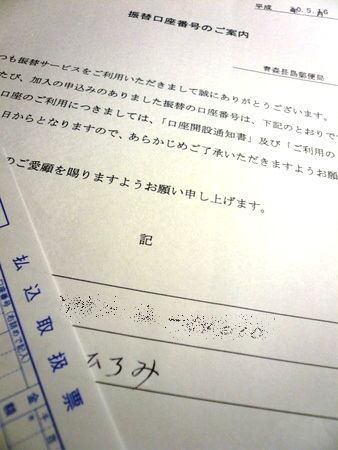 平成 20.5.16
振替口座番号のご案内
青森長島郵便局
つも振替サービスをご利用いただきまして誠にありがとうございます。
たび、加入の申込みのありました振替の口座番号は、下記のとおりで
口座のご利用につきましては、「口座開設通知書」及び「ご利用の
日からとなりますので、あらかじめご了承いただきますようお願
のご愛顧を賜りますようお願い申し上げます。
記
ろみ
払込取扱票
口座番号(右詰めで記入)
金額
千
百